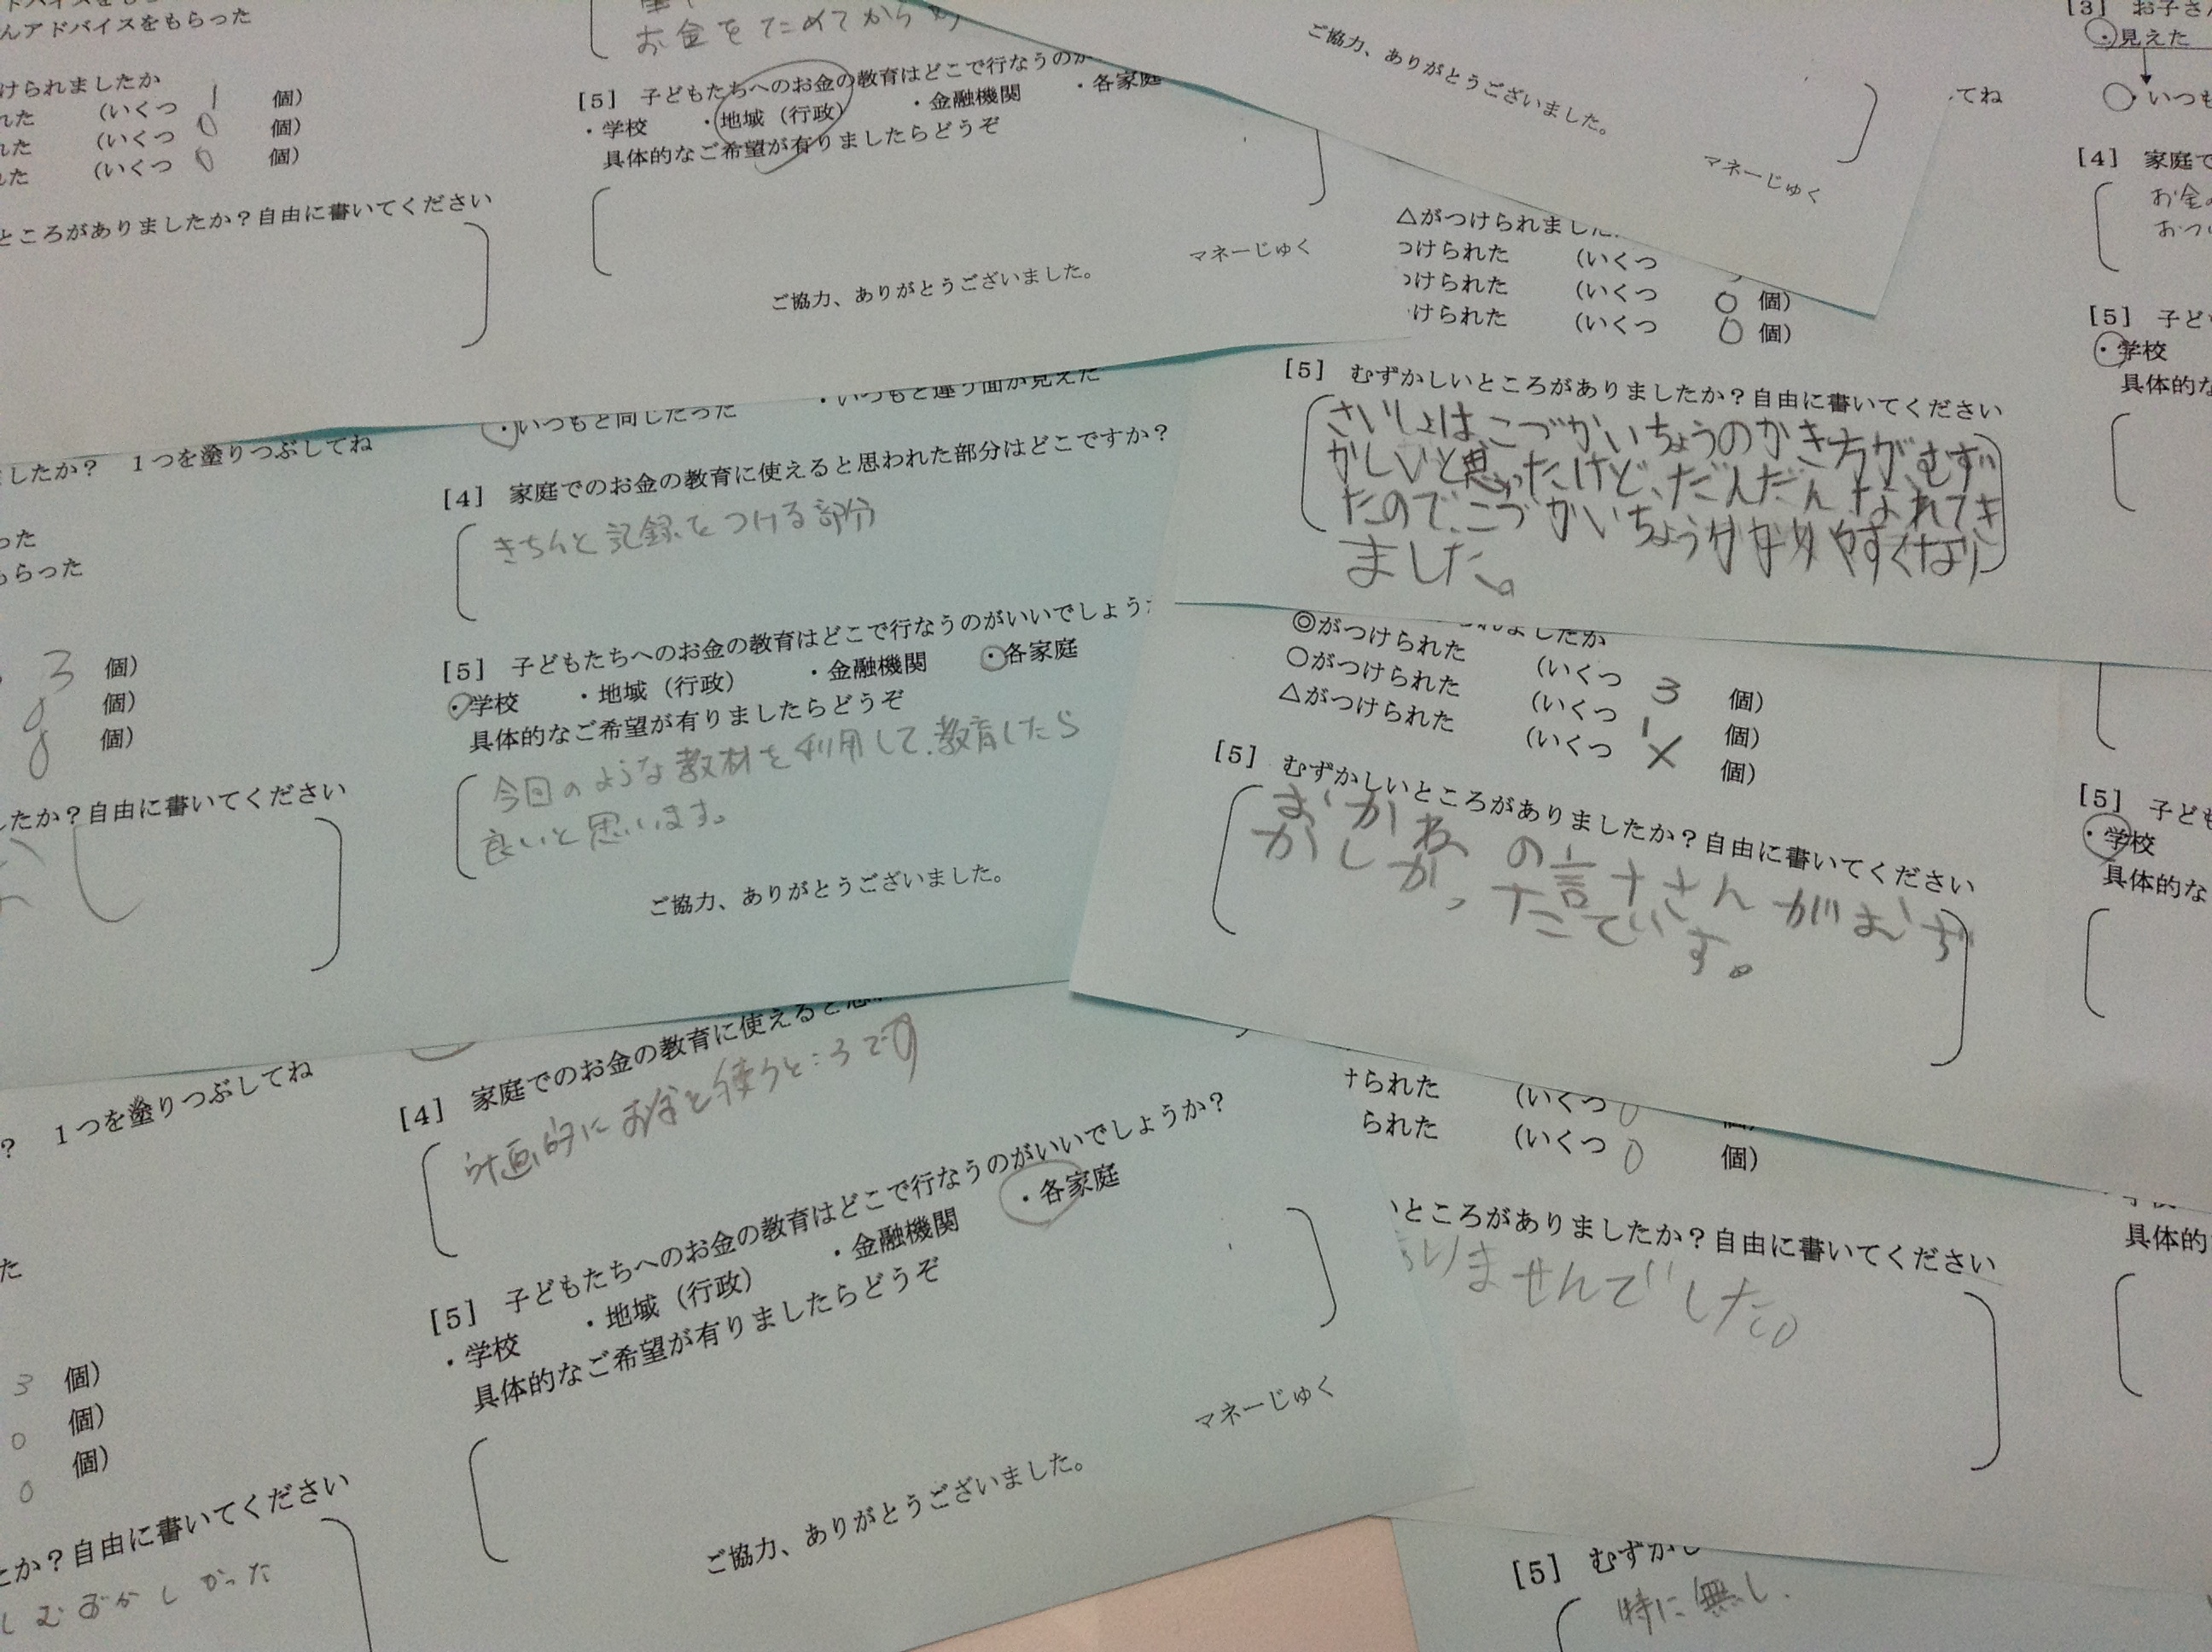 んアドバイスをもらった
けられましたか
れた (いくつ 1 個)
れた (いくつ 0 個)
れた (いくつ 0 個)
ところがありましたか？自由に書いてください
お金をためてから
[5] 子どもたちへのお金の教育はどこで行なうのが
・学校 ・地域（行政） ・金融機関 ・各家庭
具体的なご希望が有りましたらどうぞ
マネーじゅく
ご協力、ありがとうございました。
ご協力、ありがとうございました。
マネーじゅく
てね
[3] お子さ
・見えた
・いつも
[4] 家庭で
お金
おつ
[5] 子ど
・学校
具体的な
△がつけられまし
つけられた (いくつ
つけられた (いくつ 0 個)
けられた (いくつ 0 個)
[5] むずかしいところがありましたか？自由に書いてください
さいしょはこづかいちょうのかき方がむず
かしいと思ったけど、だんだんなれてき
たので、こづかいちょうが分かりやすくなり
ました。
ましたか？ 1つを塗りつぶしてね
った
もらった
3 個)
0 個)
0 個)
したか？自由に書いてください
なし
・いつもと同じだった ・いつもと違う面が見えた
[4] 家庭でのお金の教育に使えると思われた部分はどこですか？
きちんと記録をつける部分
[5] 子どもたちへのお金の教育はどこで行なうのがいいでしょう
・学校 ・地域（行政） ・金融機関 ・各家庭
具体的なご希望が有りましたらどうぞ
今回のような教材を利用して、教育したら
良いと思います。
ご協力、ありがとうございました。
れましたか
◎がつけられた (いくつ 3 個)
○がつけられた (いくつ 1 個)
△がつけられた (いくつ × 個)
[5] むずかしいところがありましたか？自由に書いてください
おかねの計さんがむず
かしかったでいす。
[5] 子ども
・学校
具体的な
？ 1つを塗りつぶしてね
た
3 個)
0 個)
0 個)
たか？自由に書いてください
しむずかしかった
[4] 家庭でのお金の教育に使えると思
計画的にお金を使うところです
[5] 子どもたちへのお金の教育はどこで行なうのがいいでしょうか？
・学校 ・地域（行政） ・金融機関 ・各家庭
具体的なご希望が有りましたらどうぞ
マネーじゅく
ご協力、ありがとうございました。
けられた (いくつ 0 個)
られた (いくつ 0 個)
いところがありましたか？自由に書いてください
ありませんでした。
具体的
[5] むずかし
特に無し.